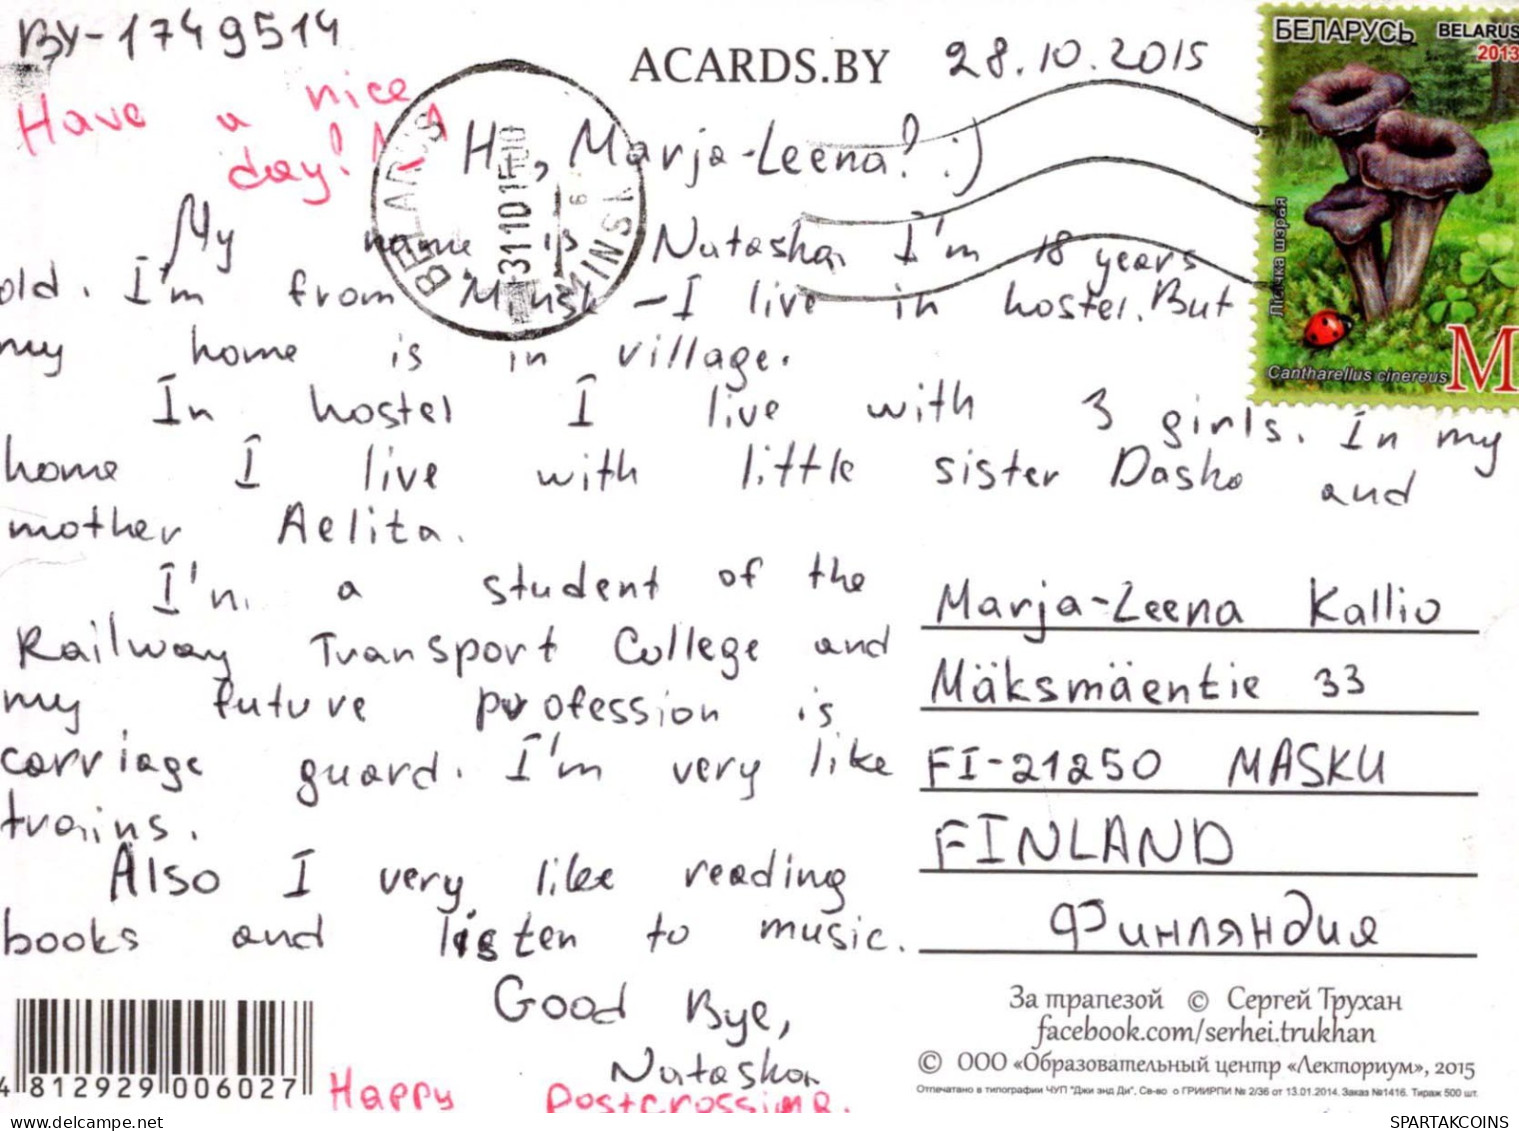 BY-1749514
ACARDS.BY
28.10.2015
БЕЛАРУСЬ BELARUS
2013
Have a nice
day!
BELARUS
311015
MINSK
Hi, Marja-Leena! :)
My name is Natasha, I'm 18 years
old. I'm from Minsk – I live in hostel. But
my home is in village.
In hostel I live with 3 girls. In my
home I live with little sister Dasha and
mother Aelita.
I'm a student of the
Railway Transport College and
my future profession is
carriage guard. I'm very like
trains.
Also I very like reading
books and listen to music.
Good Bye,
Natasha
Happy Postcrossing.
Лісічка шэрая
Cantharellus cinereus
M
Marja-Leena Kallio
Mäksmäentie 33
FI-21250 MASKU
FINLAND
Финляндия
За трапезой © Сергей Трухан
facebook.com/serhei.trukhan
© ООО «Образовательный центр «Лекториум», 2015
Отпечатано в типографии ЧУП "Джи энд Ди", Св-во о ГРИИРПИ № 2/36 от 13.01.2014. Заказ №1416. Тираж 500 шт.
4 812929 006027
www.delcampe.net
SPARTAKCOINS